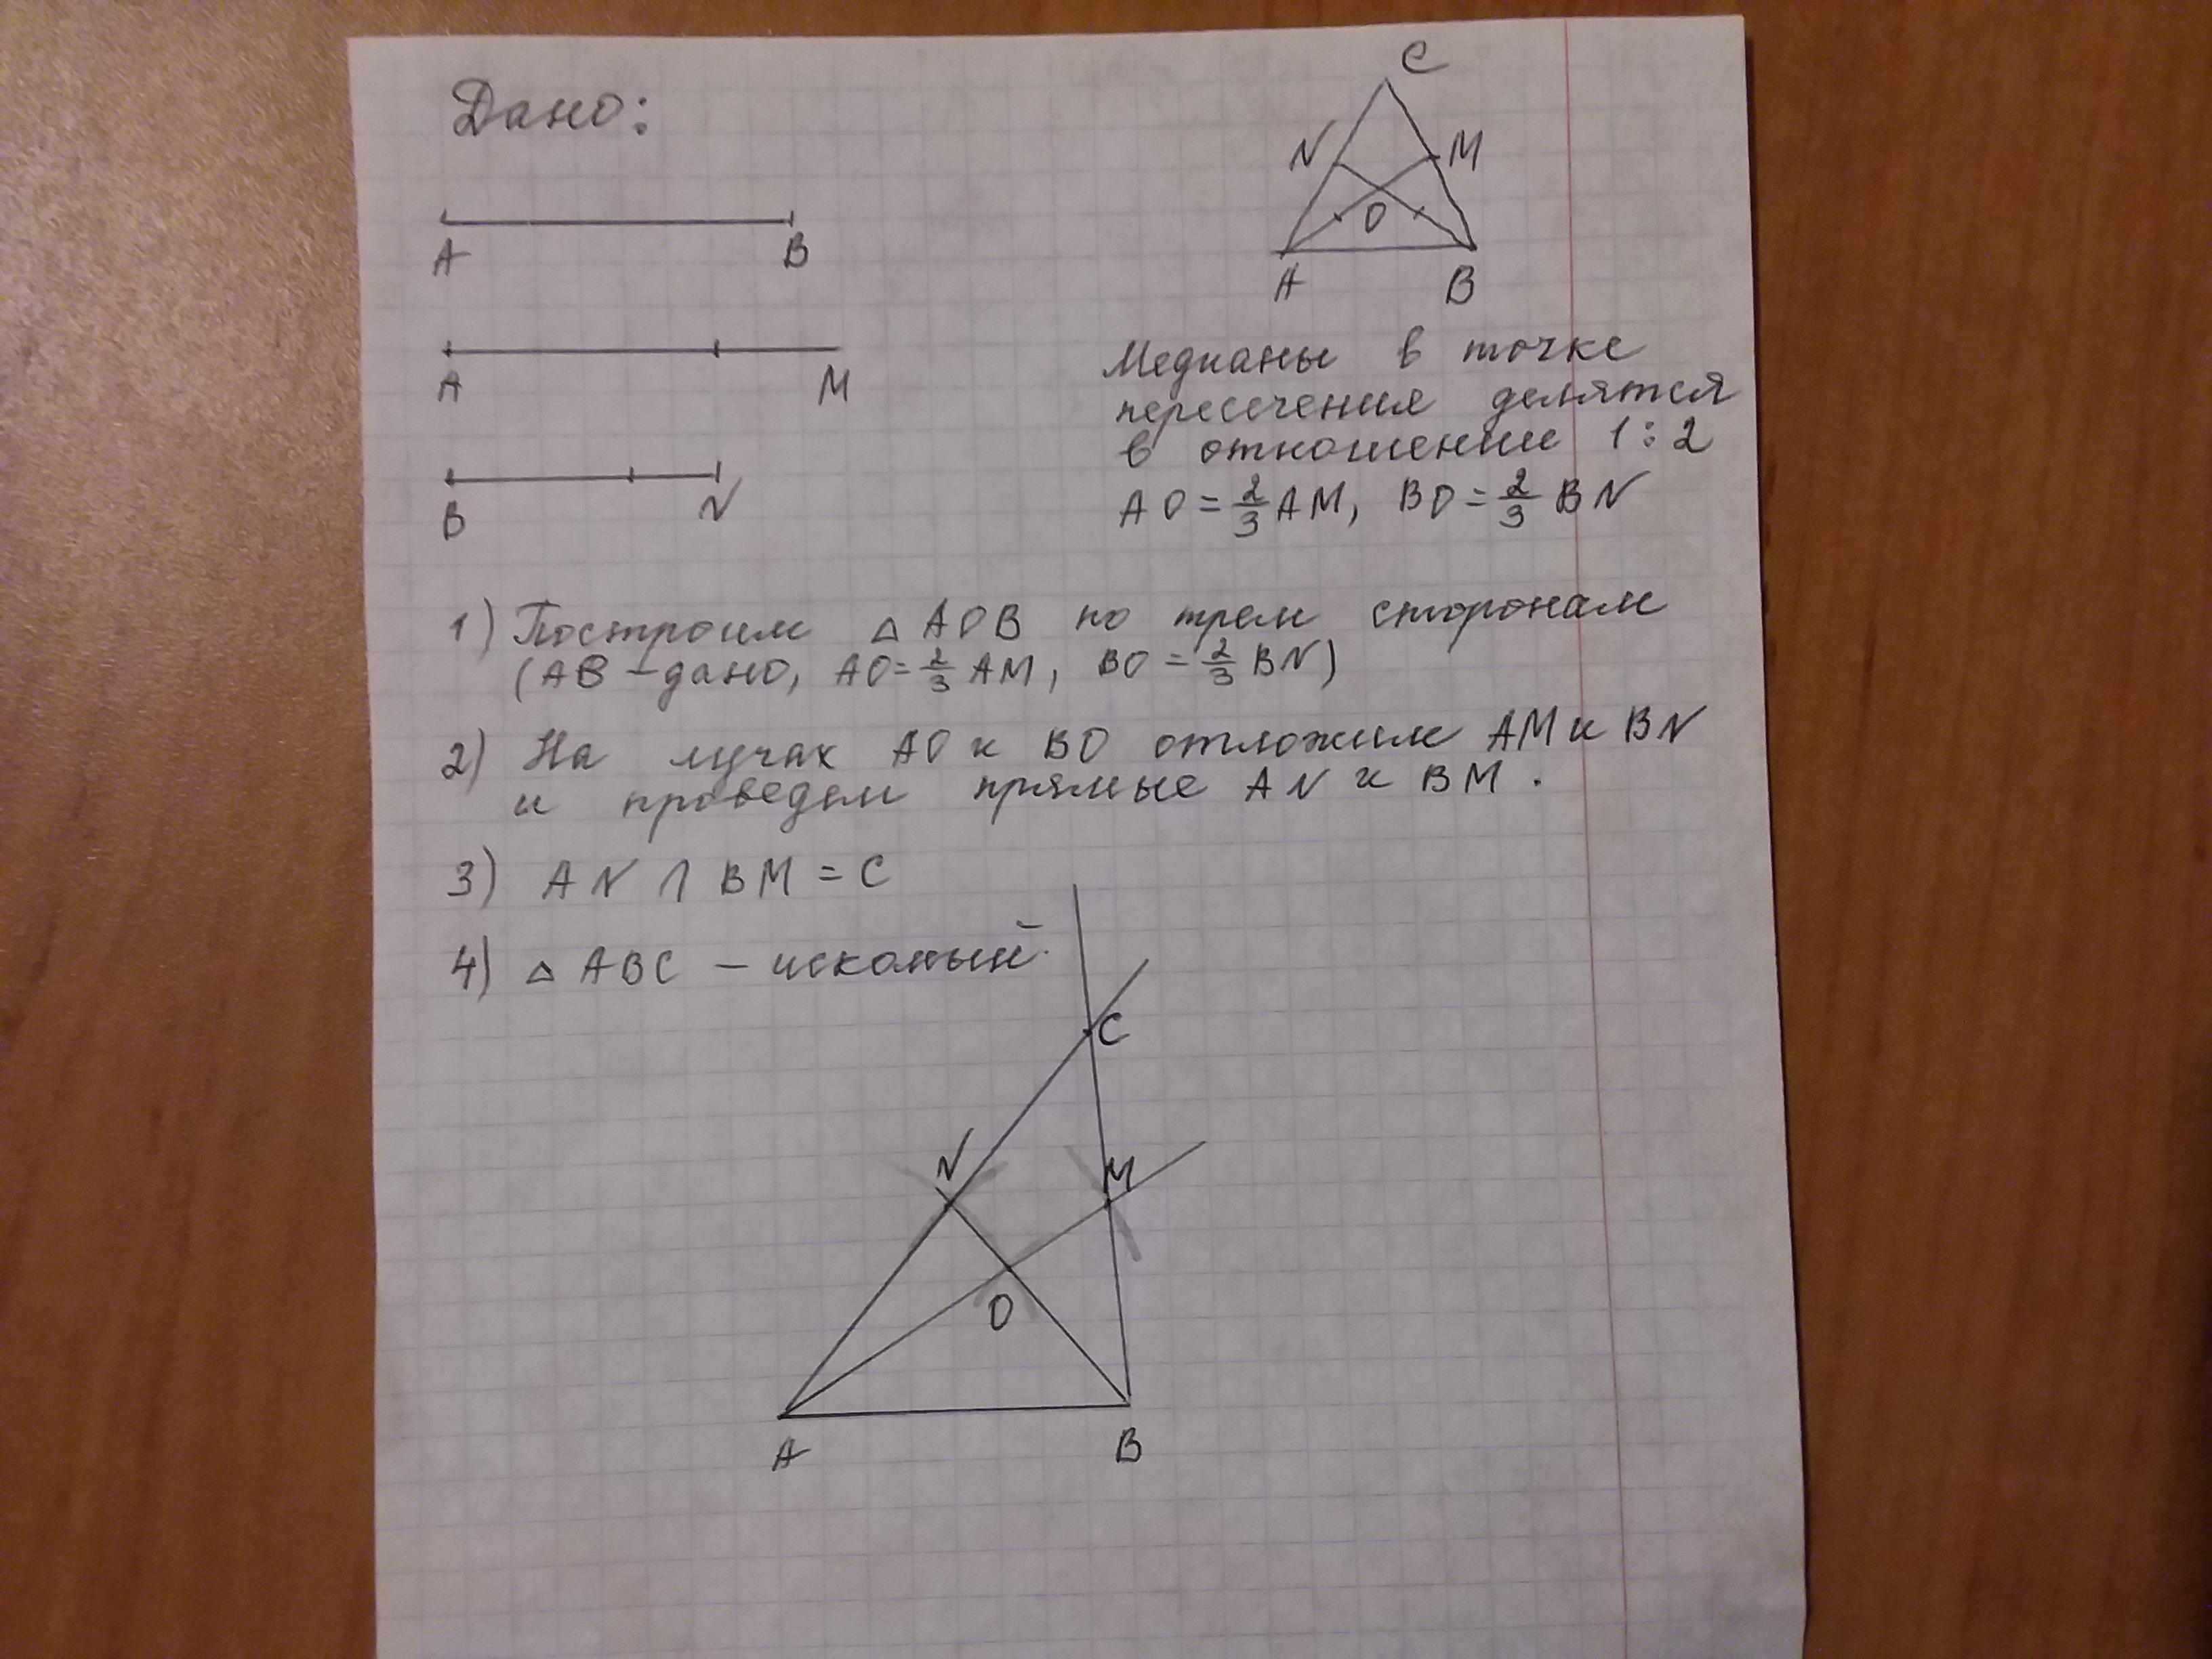 Дано:
A B
A M
B N
C
N M
O
A B
Медианы в точке
пересечения делятся
в отношении 1:2
AO = 2/3 AM, BO = 2/3 BN
1) Построим △ AOB по трем сторонам
(AB – дано, AO = 2/3 AM, BO = 2/3 BN)
2) На лучах AO и BO отложим AM и BN
и проведем прямые AN и BM.
3) AN ∩ BM = C
4) △ ABC – искомый.
C
N M
O
A B